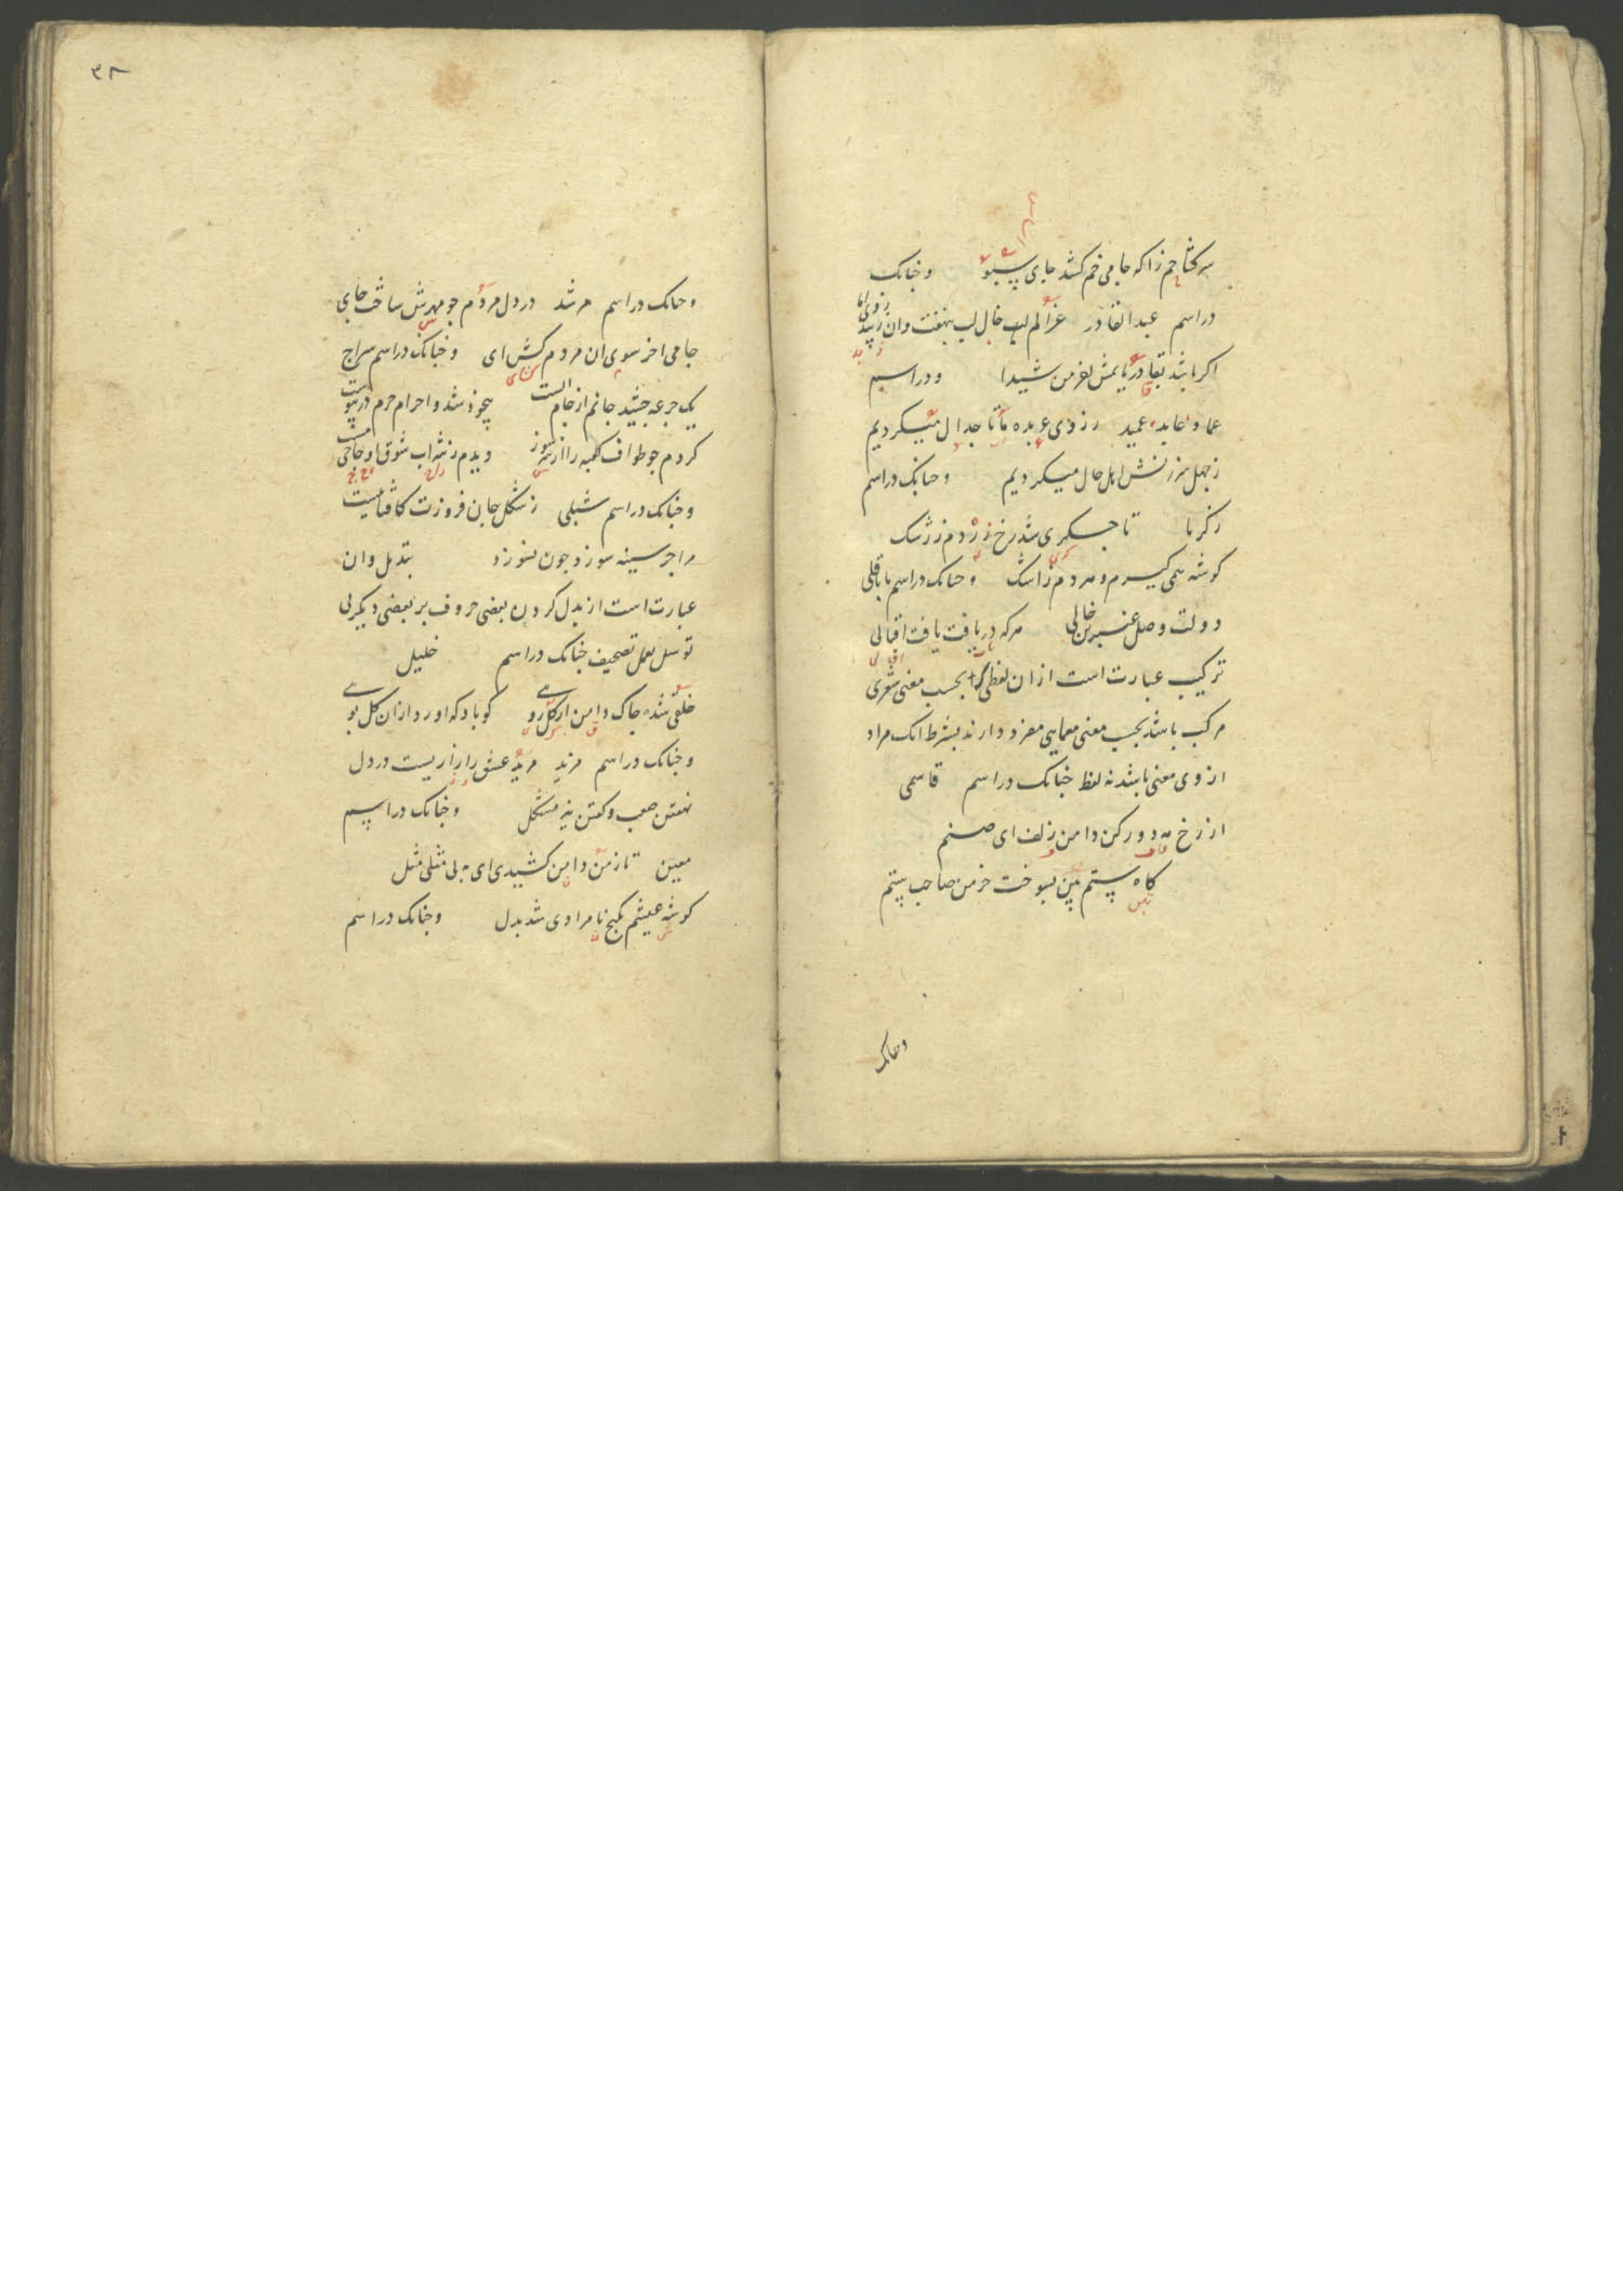 سر کشا خم زانکه جامی خم کشد جای سبو وچنانک
در اسم عبدالقادر غزالم لب خال لب نهفت وان
اکر باشد بقا در یابمش لغز من شیدا ودر اسم
عماد عابد عمید رزوی عربده ما تا جدال میکردیم
زجهل سرزنش اهل حال میکردیم وچنانک در اسم
زکریا تا جکری شد رخ زردم زرشک
کوشه همی کیرم ومردم زاشک وچنانک در اسم باباقلی
دولت وصل عنبرین خالی هرکه دریافت یافت اقبالی
ترکیب عبارتست از ان لفظی که بحسب معنی شعری
مرکب باشد بحسب معنی معمایی مفرد دارند بشرط انک مراد
ازوی معنی باشد نه لفظ چنانک در اسم قاسمی
از رخ مه دور کن دامن زلف ای صنم
کاه ستم بین بسوخت خرمن صاحب ستم
وچنانک
۳۸
وچنانک در اسم مرشد در دل مردم چو مهرش ساخت جای
جامی اخر سوی ان مردم کش ای وچنانک در اسم سراج
یک جرعه چشید جانم از جام الست بیخود شد واحرام حرم در
کردم چو طواف کعبه را از سر سوز دیدم زشراب شوق او حاجی مست
وچنانک در اسم شبلی زشکل جان فروزت کافتابیست
مرا جز سینه سوز وجون نسوزد تبدیل وان
عبارت است از بدل کردن بعضی حروف بر بعضی دیکر بی
توسل بعمل تصحیف چنانک در اسم خلیل
خلقی شده چاک دامن از کل رویی کو باد که اورد ازان کل بویی
وچنانک در اسم مزید مرید عشق را رازیست در دل
نهفتن صعب وکفتن نیز مشکل وچنانک در اسم
معین تا زمن دامن کشیدی ای به بی مثلی مثل
کوشه عیشم بکنج نامرادی شد بدل وچنانک در اسم